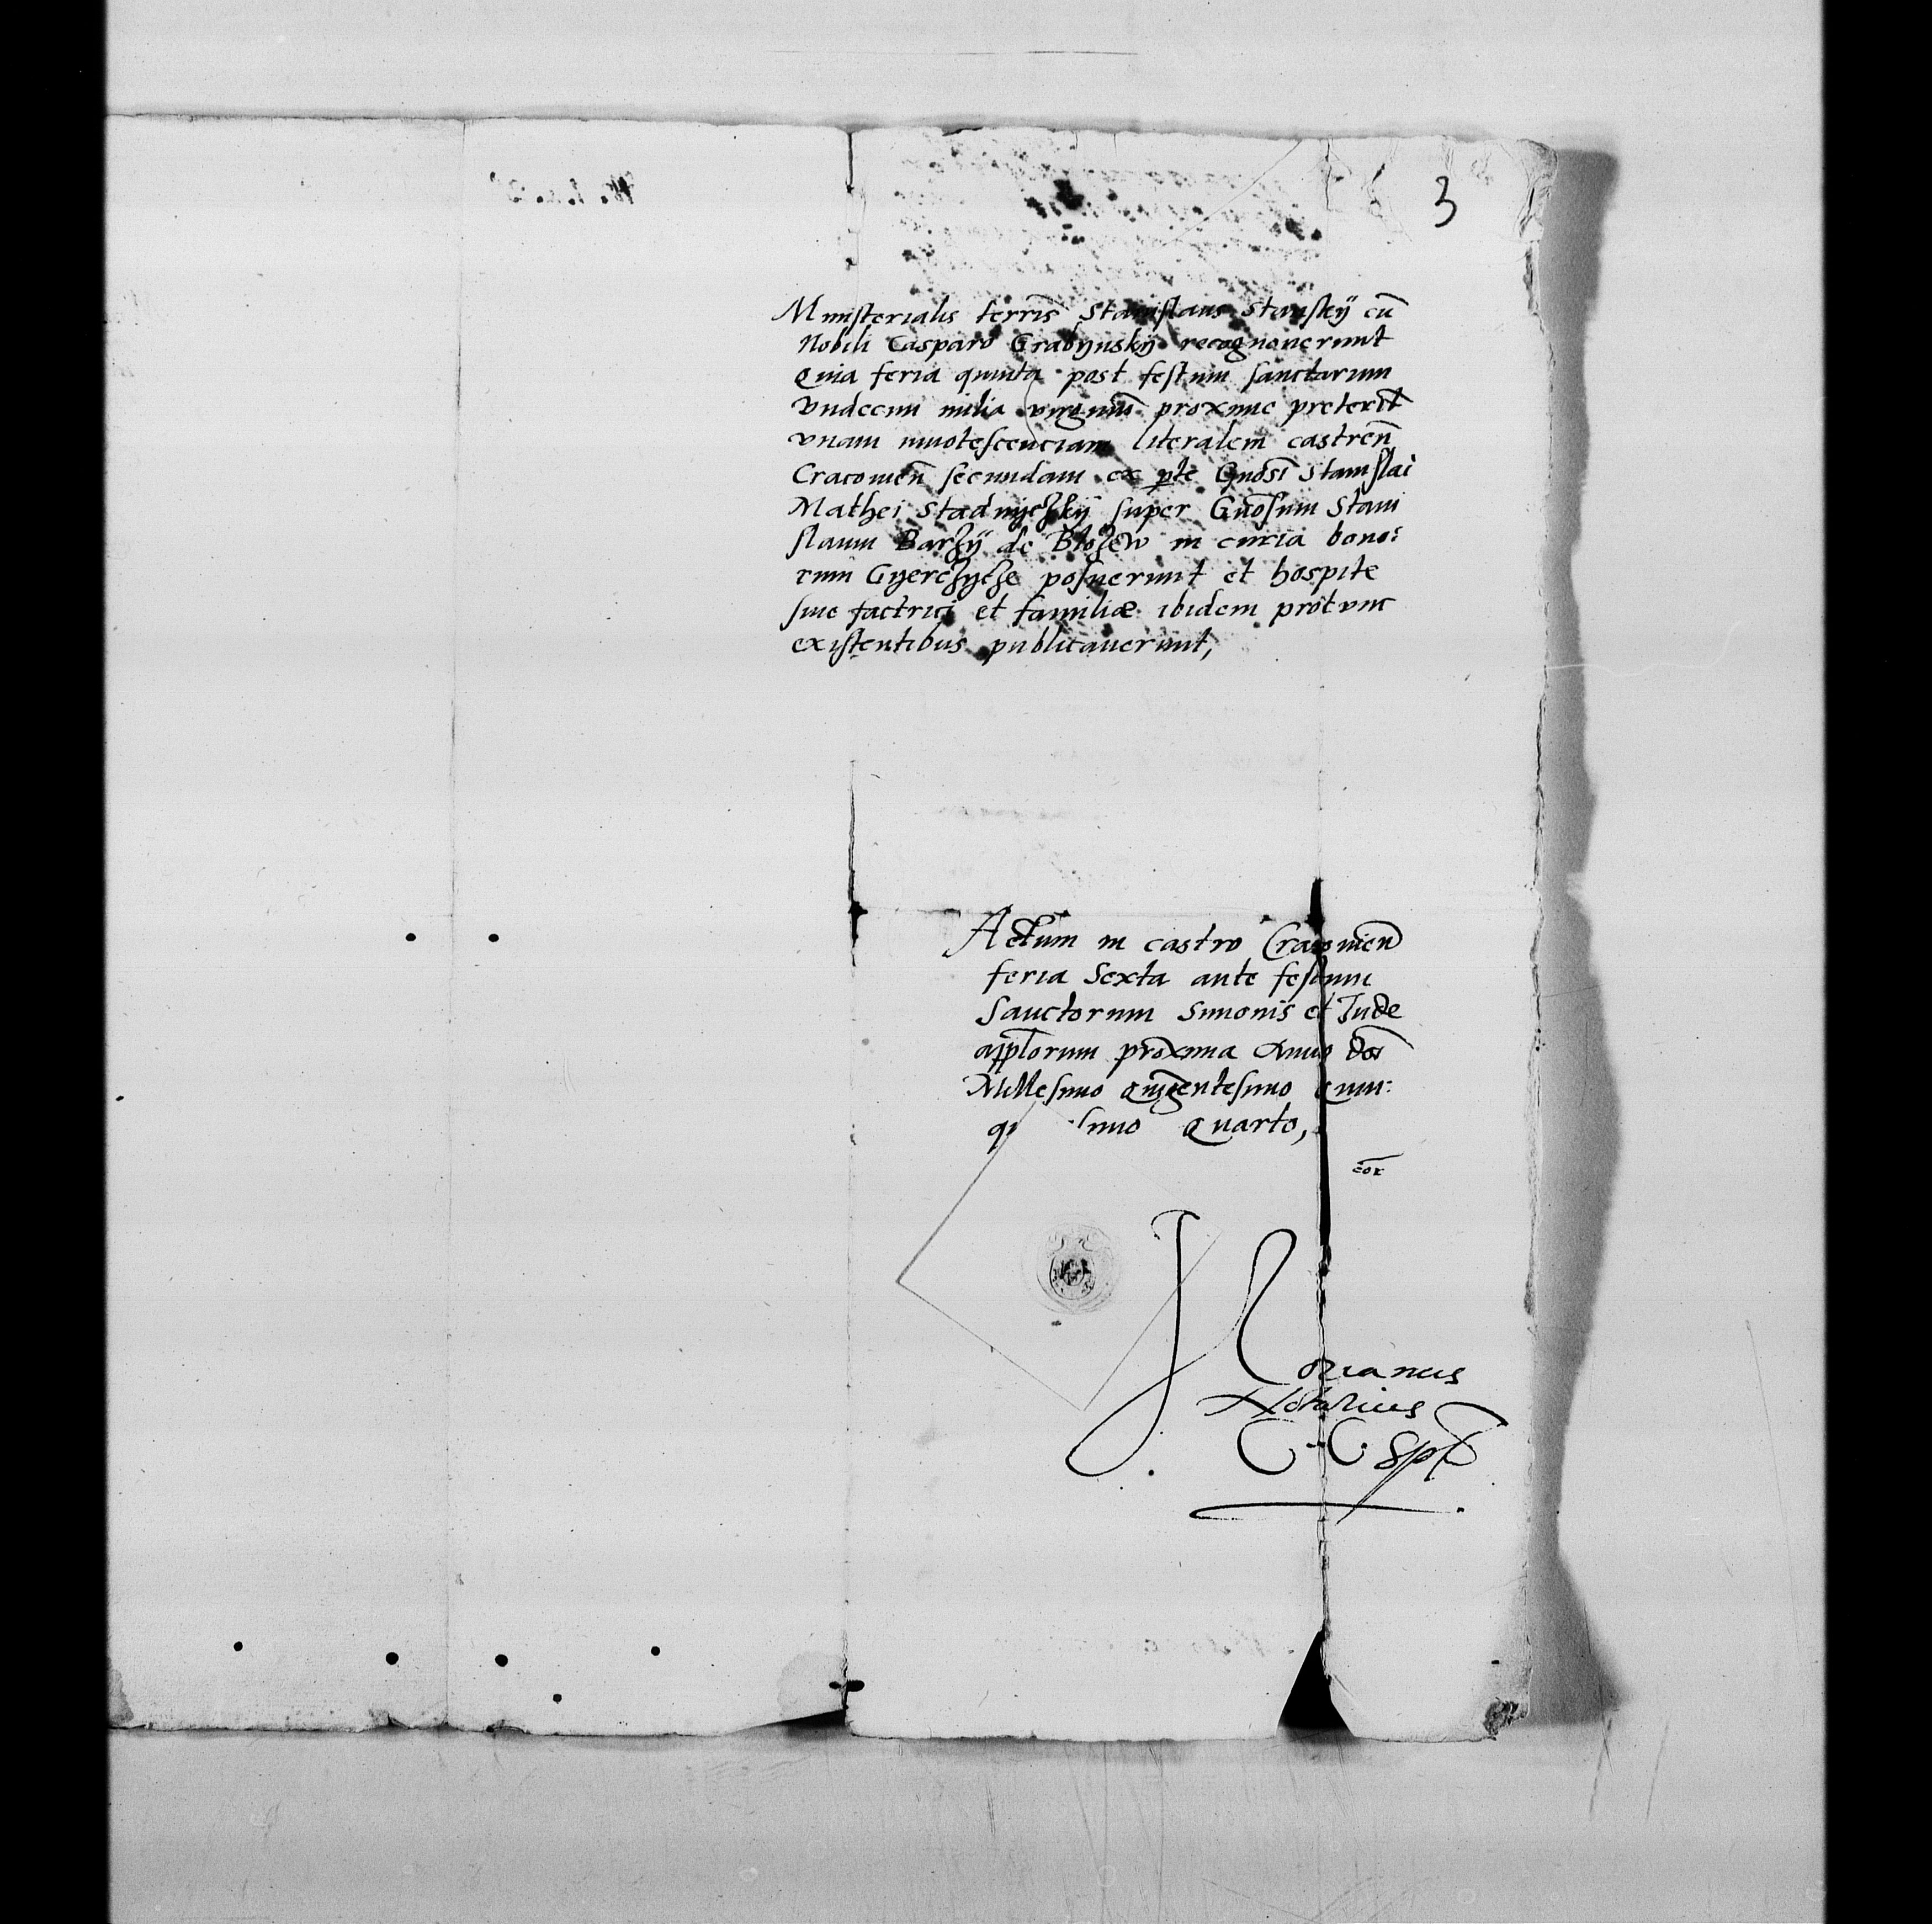 3
Ministerialis terris̄ Stanislaus Stansky cū
Nobili Casparo Grabynsky recognouerunt
Quia feria quinta post festum sanctarum
vndecim milia virginū proxime preterit̄
vnam innotescenciam literalem castren̄
Cracouien̄ secundam ex pte Gn̄osi Stanislai
Mathei Stadnyczky super Gn̄osum Stani
slaum Barzy de Blozew in curia bono:
rum Gyerczycze posuerunt et hospite
siue factrici et familiæ ibidem protunc
existentibus publicauerunt,
Actum in castro Cracouien̄
feria Sexta ante festum
Sanctorum Simonis et Jude
app̄lorum proxima Anno Dn̄i
Millesimo Quingentesimo Quin:
qu simo Quarto,
cor
orianus
Notarius
C. C. spt